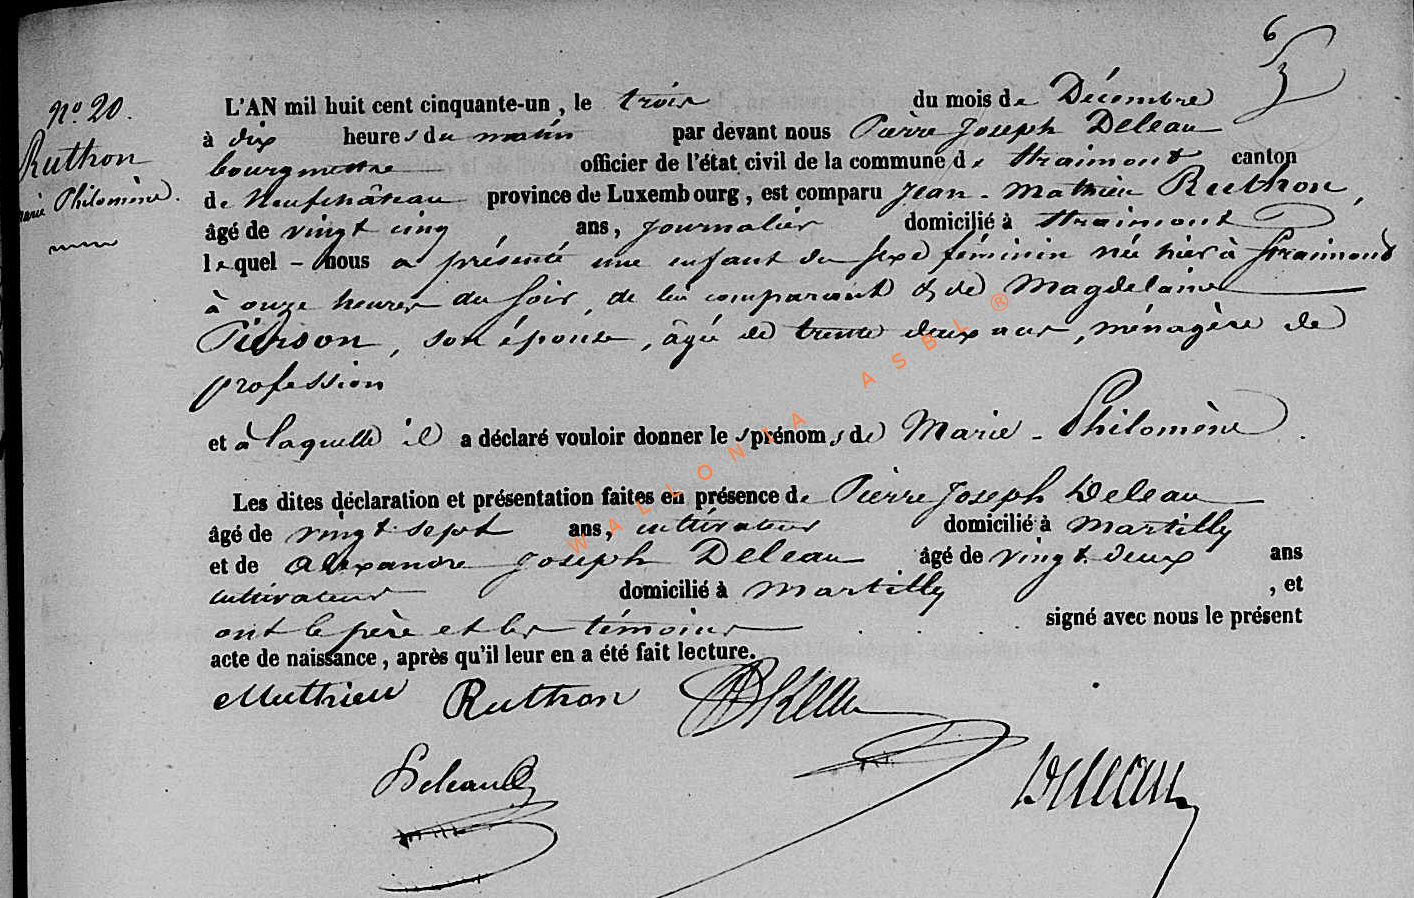 6
n.º 20.
Ruthon
Marie Philomène.
L'AN mil huit cent cinquante-un, le trois du mois de Décembre
à dix heures du matin par devant nous Pierre Joseph Deleau
bourgmestre officier de l'état civil de la commune de Straimont canton
de Neufchâteau province de Luxembourg, est comparu Jean-Mathieu Ruthon,
âgé de vingt cinq ans, journalier domicilié à Straimont
lequel - nous a présenté une enfant du sexe féminin née hier à Straimont
à onze heures du soir, de lui comparant & de Magdelaine
Pierson, son épouse, âgée de trente deux ans, ménagère de
profession
et à laquelle il a déclaré vouloir donner les prénoms de Marie-Philomène.
Les dites déclaration et présentation faites en présence de Pierre Joseph Deleau
âgé de vingt-sept ans, cultivateur domicilié à Martilly
et de Alexandre Joseph Deleau âgé de vingt-deux ans
cultivateur domicilié à Martilly, et
ont le père et les témoins signé avec nous le présent
acte de naissance, après qu'il leur en a été fait lecture.
Mathieu Ruthon
Deleau
Deleau
WALLONIA ASBL ®